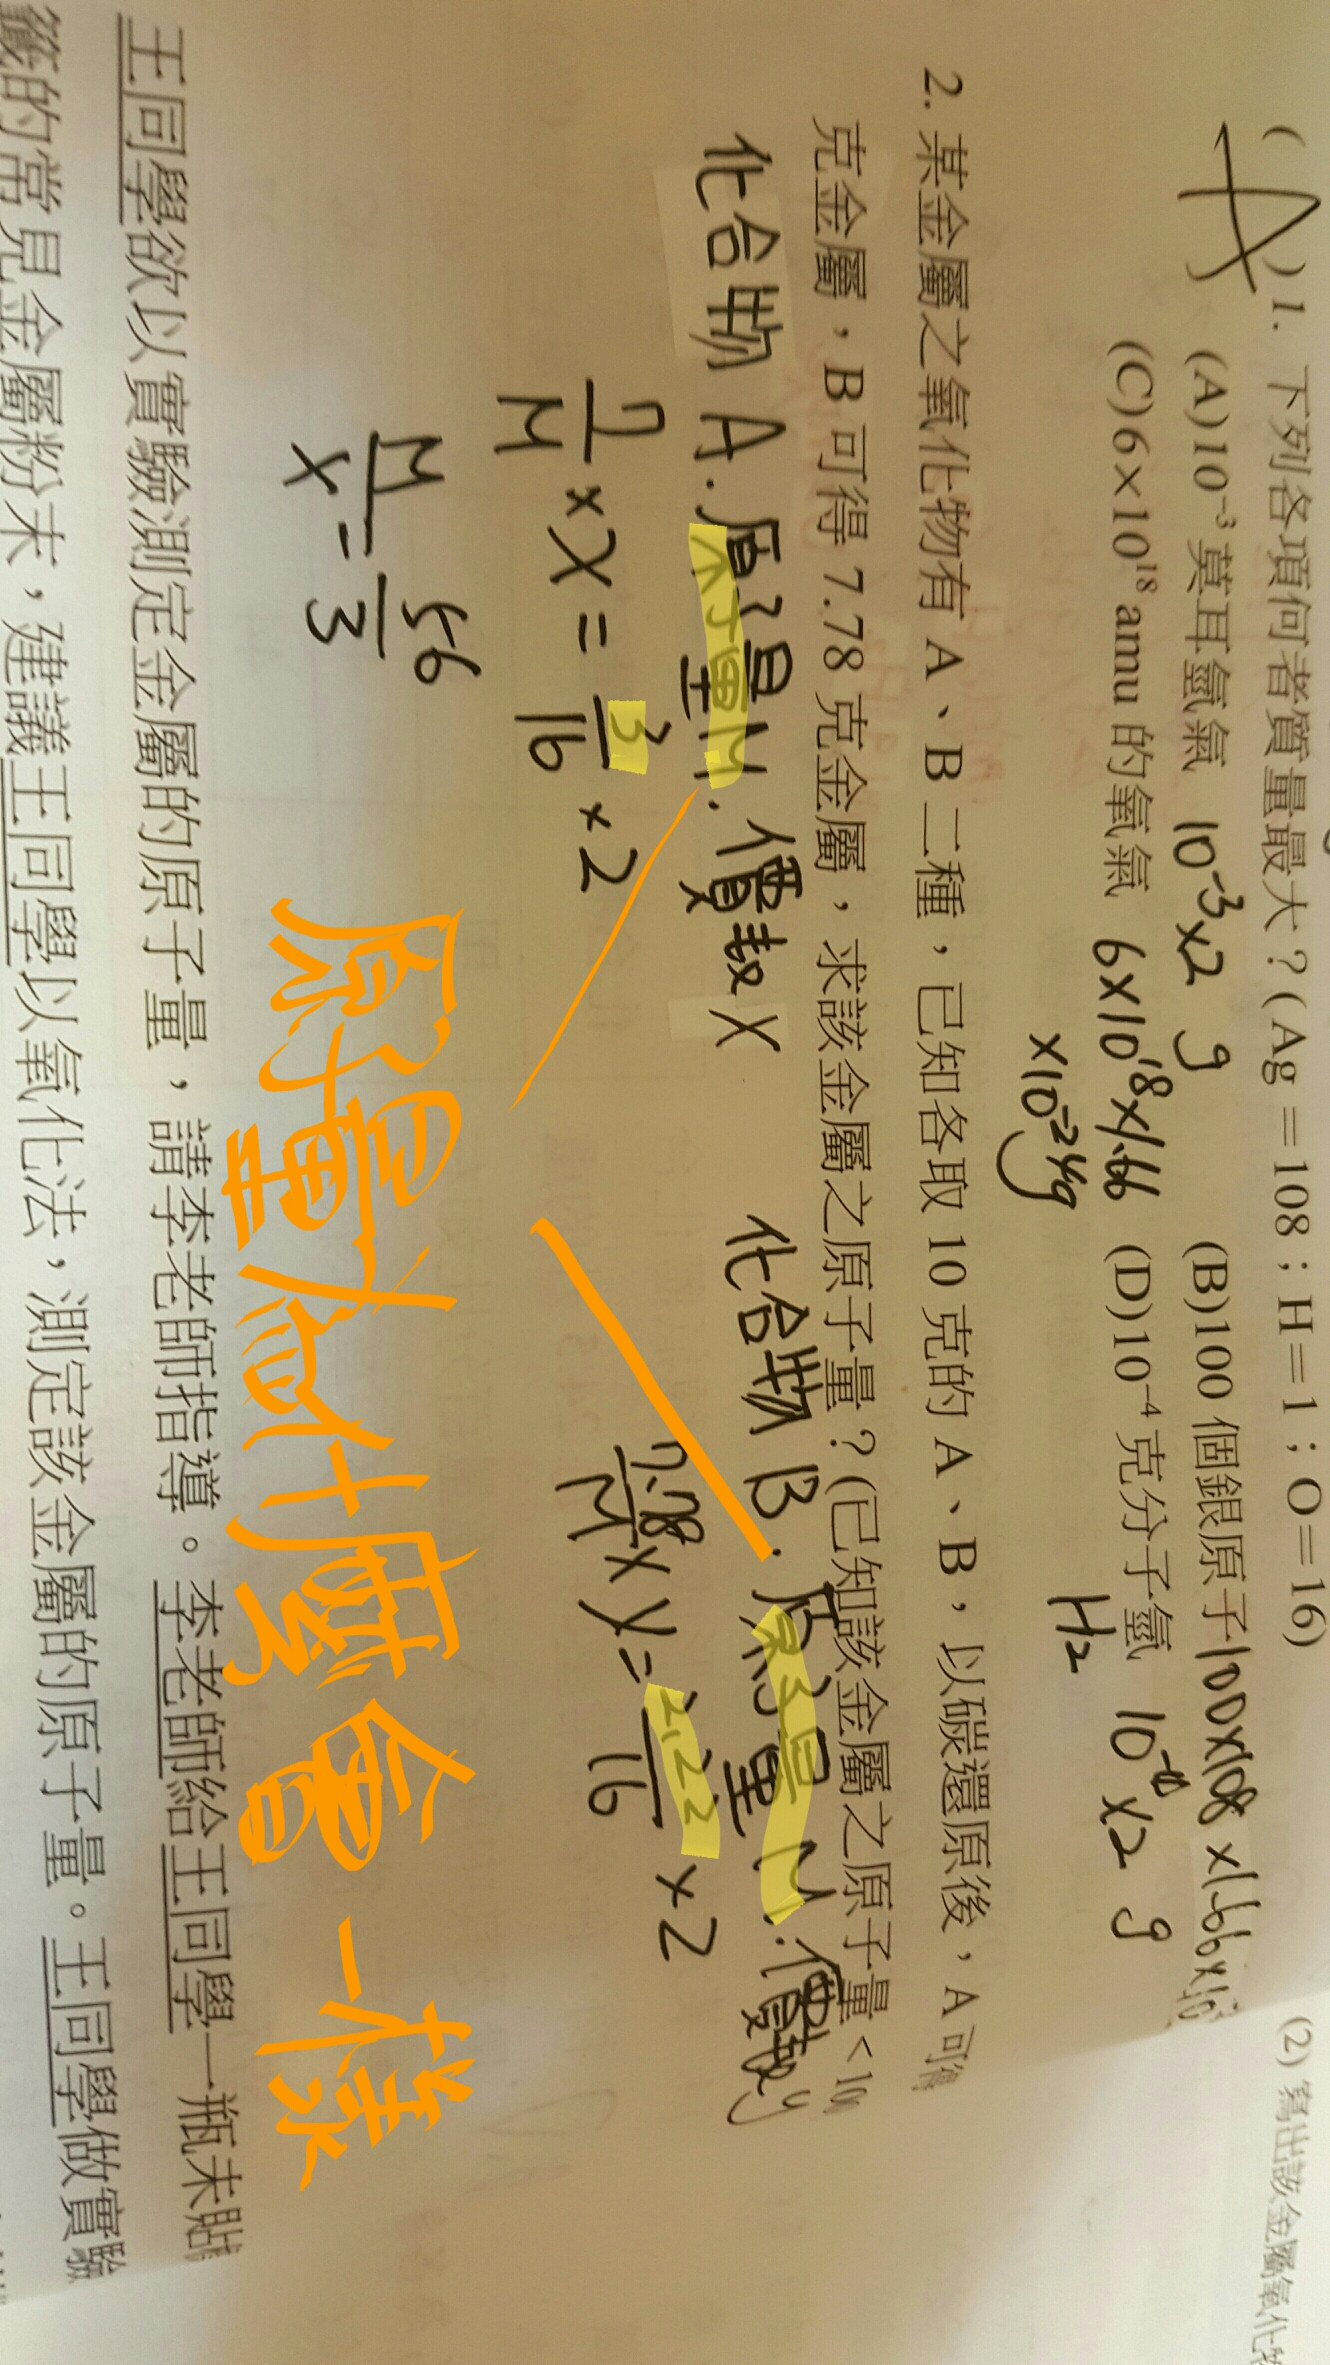 (A)1. 下列各項何者質量最大？(Ag＝108；H＝1；O＝16)
(A)10⁻³莫耳氫氣 10⁻³×2 g (B)100 個銀原子 100×108×1.66×10
(C)6×10¹⁸ amu 的氧氣 6×10¹⁸×1.66 (D)10⁻⁴克分子氫 10⁻⁴×2 g
×10⁻²⁴g H₂
2. 某金屬之氧化物有 A、B 二種，已知各取 10 克的 A、B，以碳還原後，A 可得
克金屬，B 可得 7.78 克金屬，求該金屬之原子量？(已知該金屬之原子量＜100
化合物 A. 原子量M. 價數 X
化合物 B. 原子量 M. 價數y
7/M × X = 3/16 × 2
7.78/M × y = 2.22/16 × 2
M/X = 56/3
原子量為什麼會一樣
王同學欲以實驗測定金屬的原子量，請李老師指導。李老師給王同學一瓶未貼
籤的常見金屬粉末，建議王同學以氧化法，測定該金屬的原子量。王同學做實驗
(2) 寫出該金屬氧化物